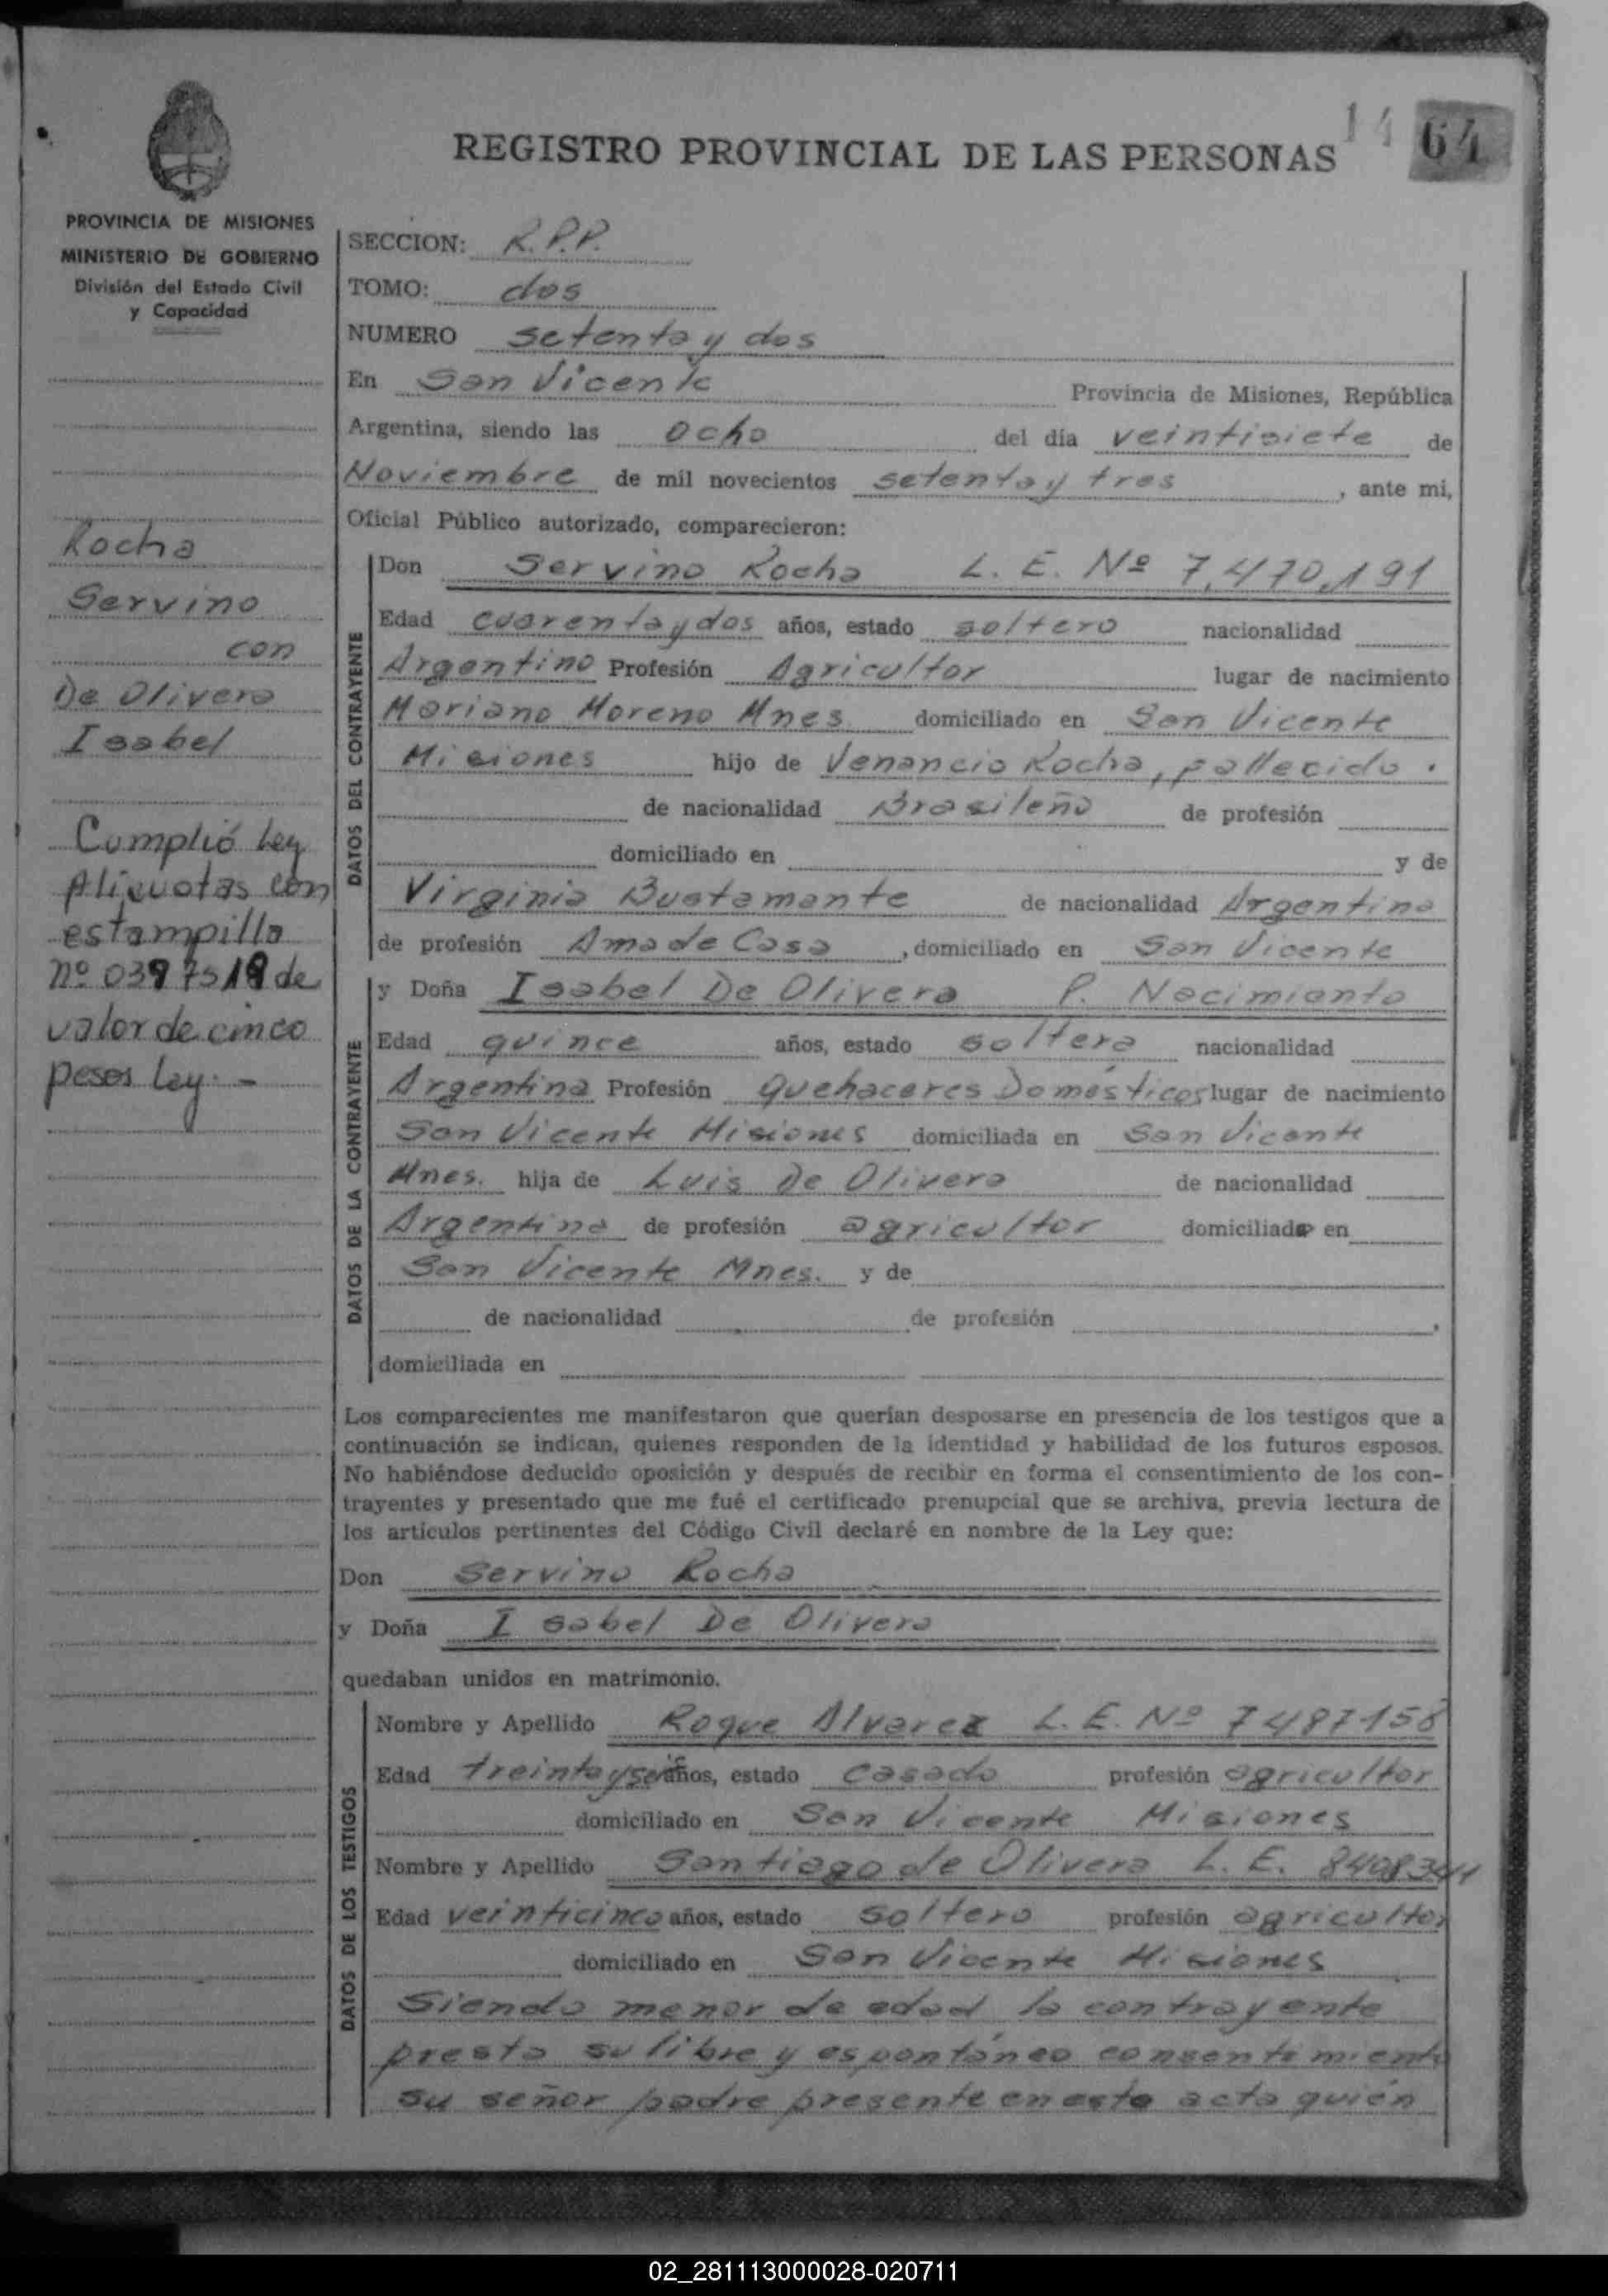 14 64
REGISTRO PROVINCIAL DE LAS PERSONAS
PROVINCIA DE MISIONES
MINISTERIO DE GOBIERNO
División del Estado Civil
y Capacidad
Rocha
Servino
con
De Olivera
Isabel
Cumplió Ley
Alicuotas con
estampilla
nº 0397518 de
valor de cinco
pesos Ley. -
SECCION: R.P.P.
TOMO: dos
NUMERO setenta y dos
En San Vicente Provincia de Misiones, República
Argentina, siendo las ocho del día veintisiete de
Noviembre de mil novecientos setenta y tres, ante mi,
Oficial Público autorizado, comparecieron:
DATOS DEL CONTRAYENTE
Don Servino Rocha L. E. Nº 7,470,191
Edad cuarenta y dos años, estado soltero nacionalidad
Argentino Profesión Agricultor lugar de nacimiento
Mariano Moreno Mnes domiciliado en San Vicente
Misiones hijo de Venancio Rocha, fallecido.
de nacionalidad Brasileño de profesión
domiciliado en y de
Virginia Bustamante de nacionalidad Argentina
de profesión Ama de Casa, domiciliado en San Vicente
DATOS DE LA CONTRAYENTE
y Doña Isabel De Olivera P. Nacimiento
Edad quince años, estado soltera nacionalidad
Argentina Profesión Quehaceres Domésticos lugar de nacimiento
San Vicente Misiones domiciliada en San Vicente
Mnes. hija de Luis De Olivera de nacionalidad
Argentina de profesión agricultor domiciliado en
San Vicente Mnes. y de
de nacionalidad de profesión ,
domiciliada en
Los comparecientes me manifestaron que querían desposarse en presencia de los testigos que a
continuación se indican, quienes responden de la identidad y habilidad de los futuros esposos.
No habiéndose deducido oposición y después de recibir en forma el consentimiento de los con-
trayentes y presentado que me fué el certificado prenupcial que se archiva, previa lectura de
los artículos pertinentes del Código Civil declaré en nombre de la Ley que:
Don Servino Rocha
y Doña Isabel De Olivera
quedaban unidos en matrimonio.
DATOS DE LOS TESTIGOS
Nombre y Apellido Roque Alvarez L. E. Nº 7487158
Edad treinta y seis años, estado casado profesión agricultor
domiciliado en San Vicente Misiones
Nombre y Apellido Santiago de Olivera L. E. 8408344
Edad veinticinco años, estado soltero profesión agricultor
domiciliado en San Vicente Misiones
Siendo menor de edad la contrayente
presta su libre y espontáneo consentimiento
su señor padre presente en este acto quién
02_281113000028-020711